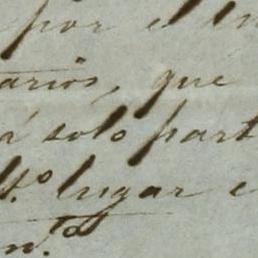 por el in
arios, que
á solo part
t.º lugar e
n.to